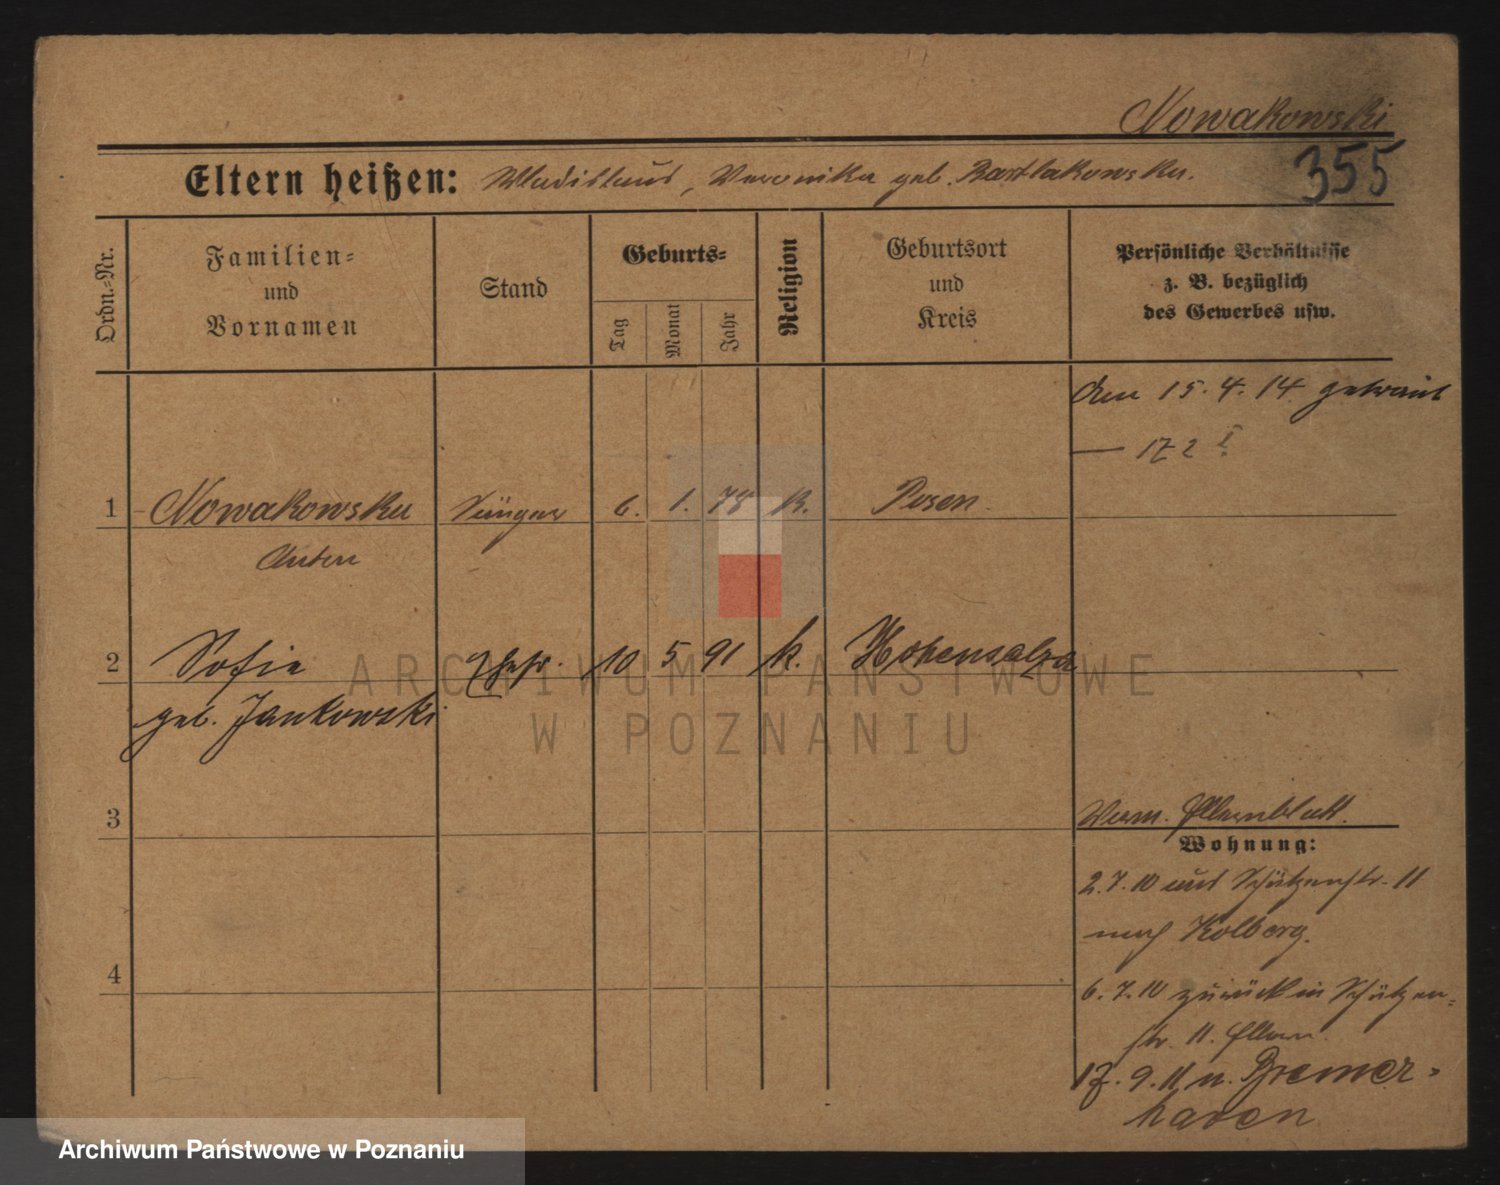 Nowakowski
355
Eltern heißen: Wladislaus, Veronika geb. Bartlakowska.
Ordn.-Nr.
Familien-
und
Vornamen
Stand
Geburts-
Tag
Monat
Jahr
Religion
Geburtsort
und
Kreis
Persönliche Verhältnisse
z. B. bezüglich
des Gewerbes usw.
Am 15.4.14 getraut
— 172 I
1 Nowakowski Sänger 6. 1. 78 k. Posen.
Anton
2 Sofie Ehefr. 10 5 91 k. Hohensalza
geb. Jankowski
3
Verm. Elternblatt.
Wohnung:
2.7.10 aus Schützenstr. 11
nach Kolberg.
4
6.7.10 zurück in Schützen-
str. 11. Eltern
17.9.11 n. Bremer-
haven
ARCHIWUM PAŃSTWOWE
W POZNANIU
Archiwum Państwowe w Poznaniu